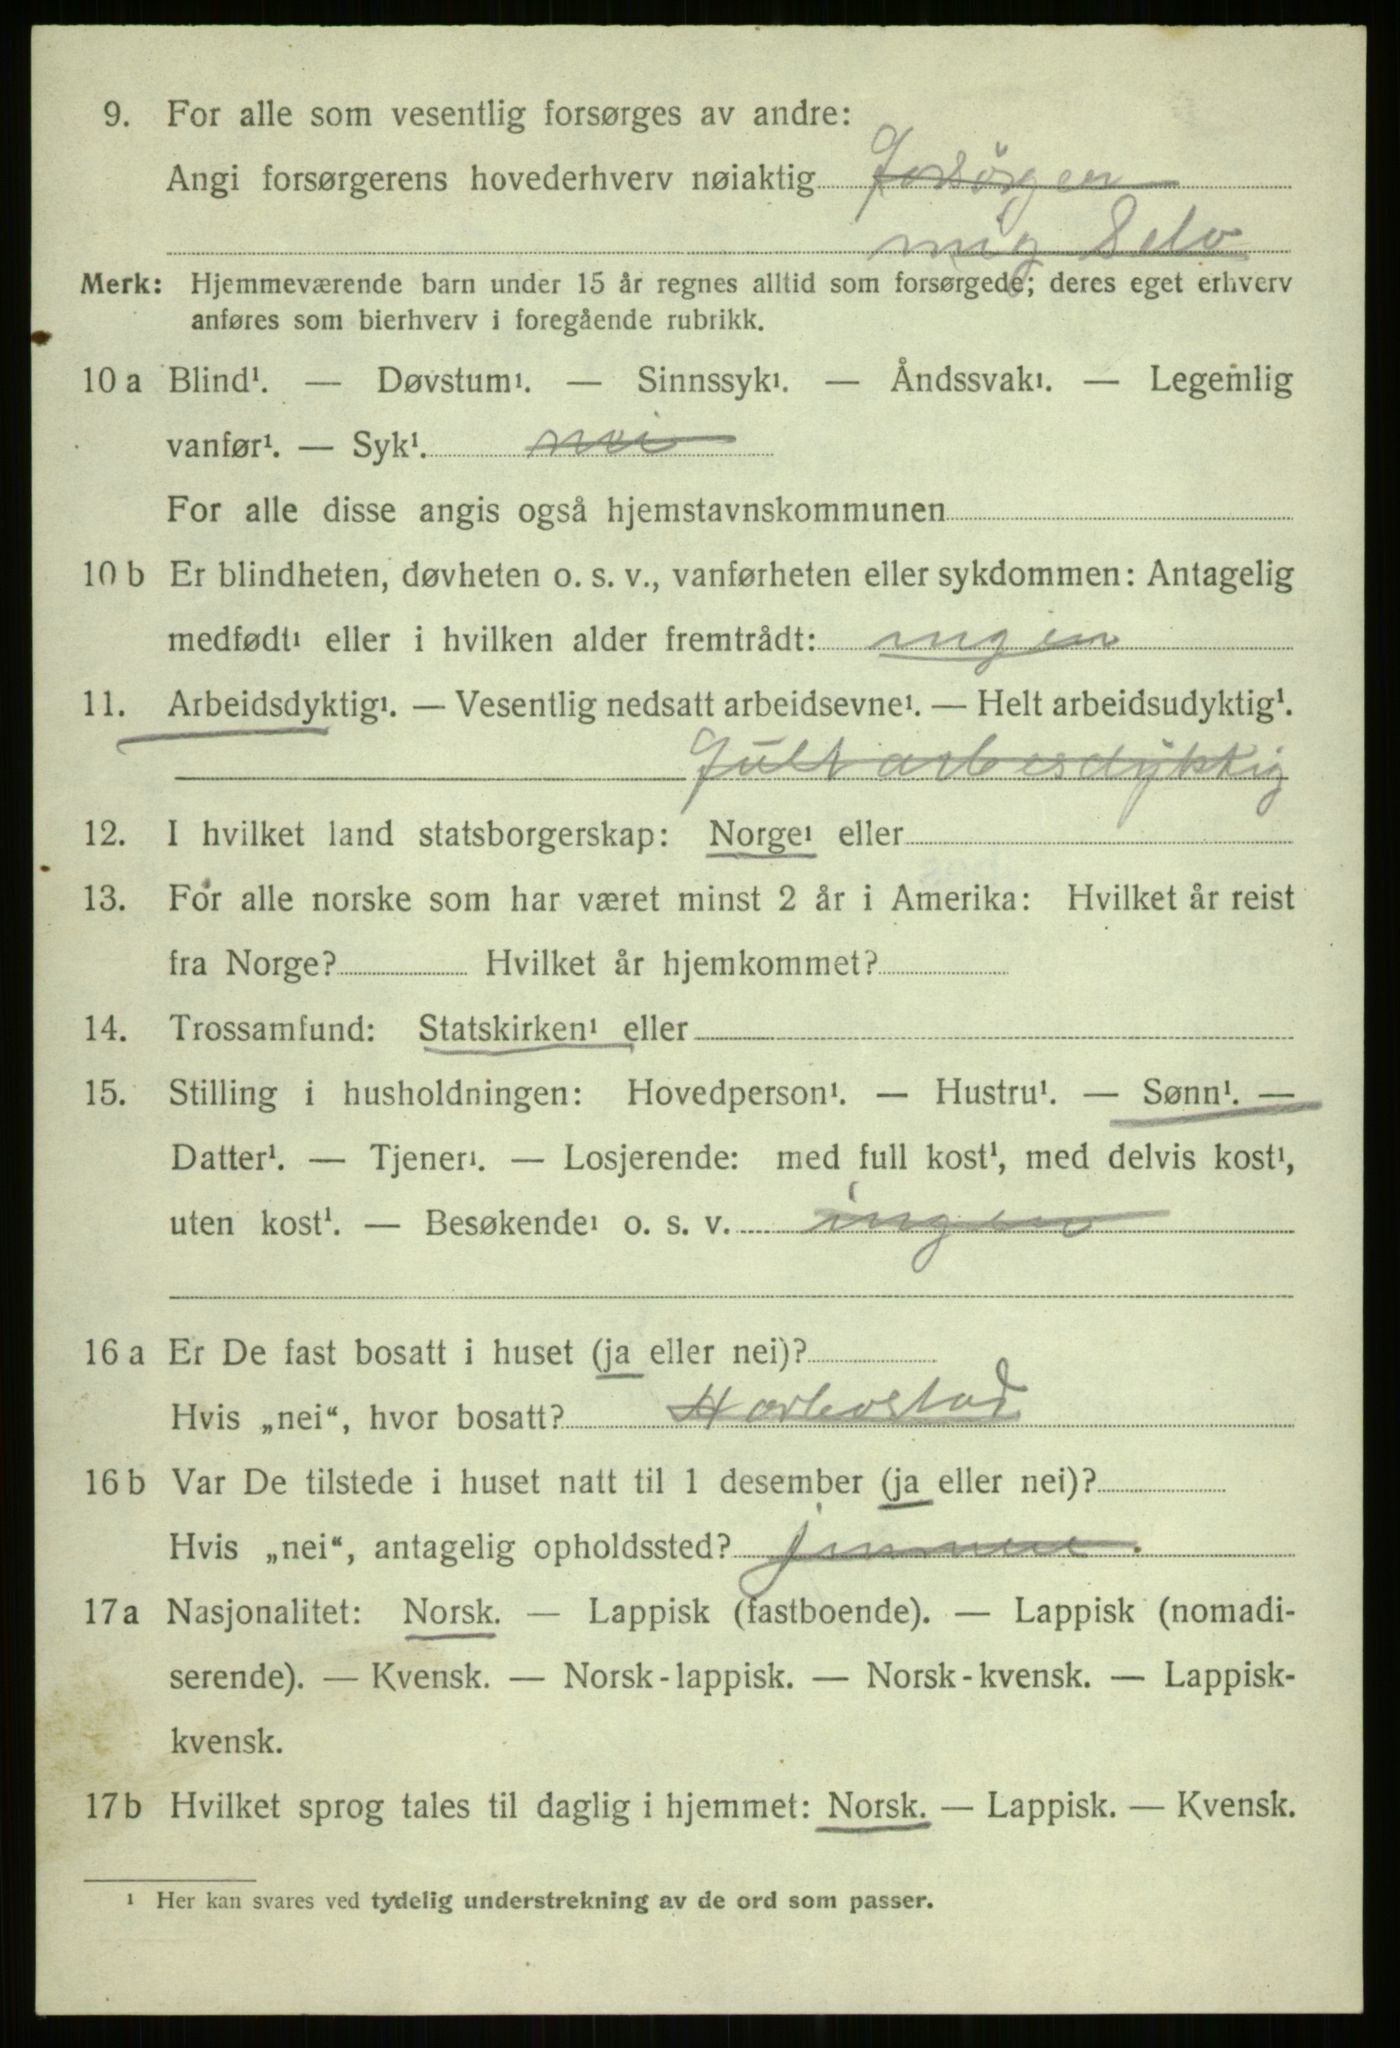 9. For alle som vesentlig forsørges av andre:
Angi forsørgerens hovederhverv nøiaktig Forsörgen
mig Selv
Merk: Hjemmeværende barn under 15 år regnes alltid som forsørgede; deres eget erhverv
anføres som bierhverv i foregående rubrikk.
10 a Blind¹. — Døvstum¹. — Sinnssyk¹. — Åndssvak¹. — Legemlig
vanfør¹. — Syk¹. nei
For alle disse angis også hjemstavnskommunen
10 b Er blindheten, døvheten o. s. v., vanførheten eller sykdommen: Antagelig
medfødt¹ eller i hvilken alder fremtrådt: ingen
11. Arbeidsdyktig¹. — Vesentlig nedsatt arbeidsevne¹. — Helt arbeidsudyktig¹.
Fult arbesdyktig
12. I hvilket land statsborgerskap: Norge¹ eller
13. For alle norske som har været minst 2 år i Amerika: Hvilket år reist
fra Norge? Hvilket år hjemkommet?
14. Trossamfund: Statskirken¹ eller
15. Stilling i husholdningen: Hovedperson¹. — Hustru¹. — Sønn¹. —
Datter¹. — Tjener¹. — Losjerende: med full kost¹, med delvis kost¹,
uten kost¹. — Besøkende¹ o. s. v. ingen
16 a Er De fast bosatt i huset (ja eller nei)?
Hvis „nei“, hvor bosatt? Harbostad
16 b Var De tilstede i huset natt til 1 desember (ja eller nei)?
Hvis „nei“, antagelig opholdssted?
17 a Nasjonalitet: Norsk. — Lappisk (fastboende). — Lappisk (nomadi-
serende). — Kvensk. — Norsk-lappisk. — Norsk-kvensk. — Lappisk-
kvensk.
17 b Hvilket sprog tales til daglig i hjemmet: Norsk. — Lappisk. — Kvensk.
¹ Her kan svares ved tydelig understrekning av de ord som passer.